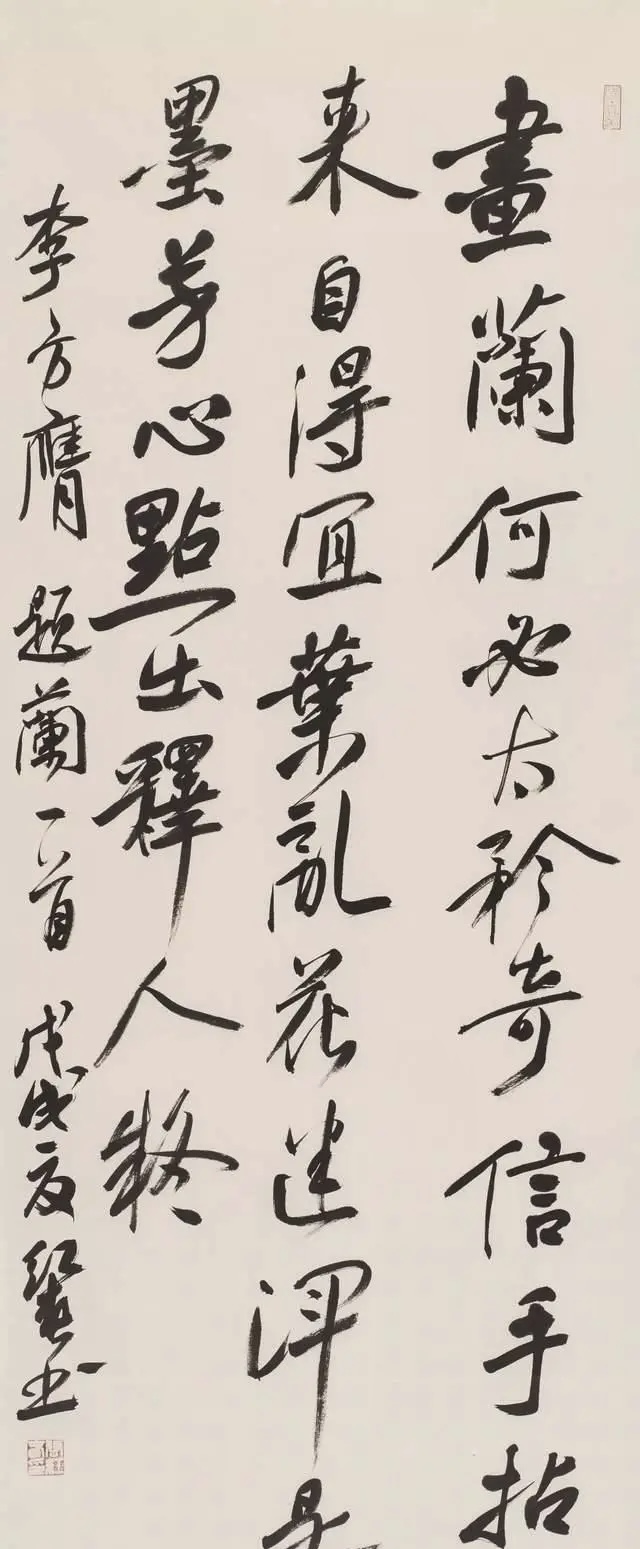 畫蘭何必太矜奇信手拈
来自得宜葉亂花迷渾是
墨芳心點出釋人疑
李方膺題蘭一首 戊戌夏 书